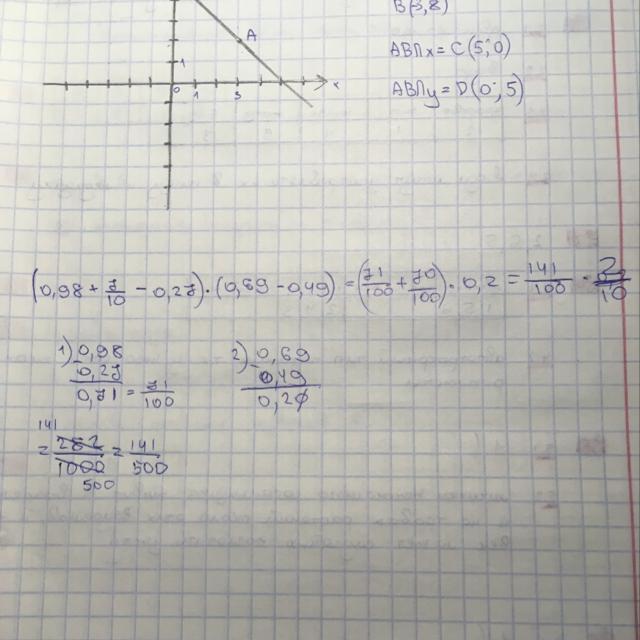 B(3,8)
A
1
0 1 3 x
AB∩x = C(5;0)
AB∩y = D(0;5)
(0,98 + 7/10 − 0,27)·(0,69 − 0,49) = (71/100 + 70/100)·0,2 = 141/100 · 2/10
1) 0,98
0,27
0,71 = 71/100
2) 0,69
0,49
0,20
141
= 282/1000 = 141/500
500